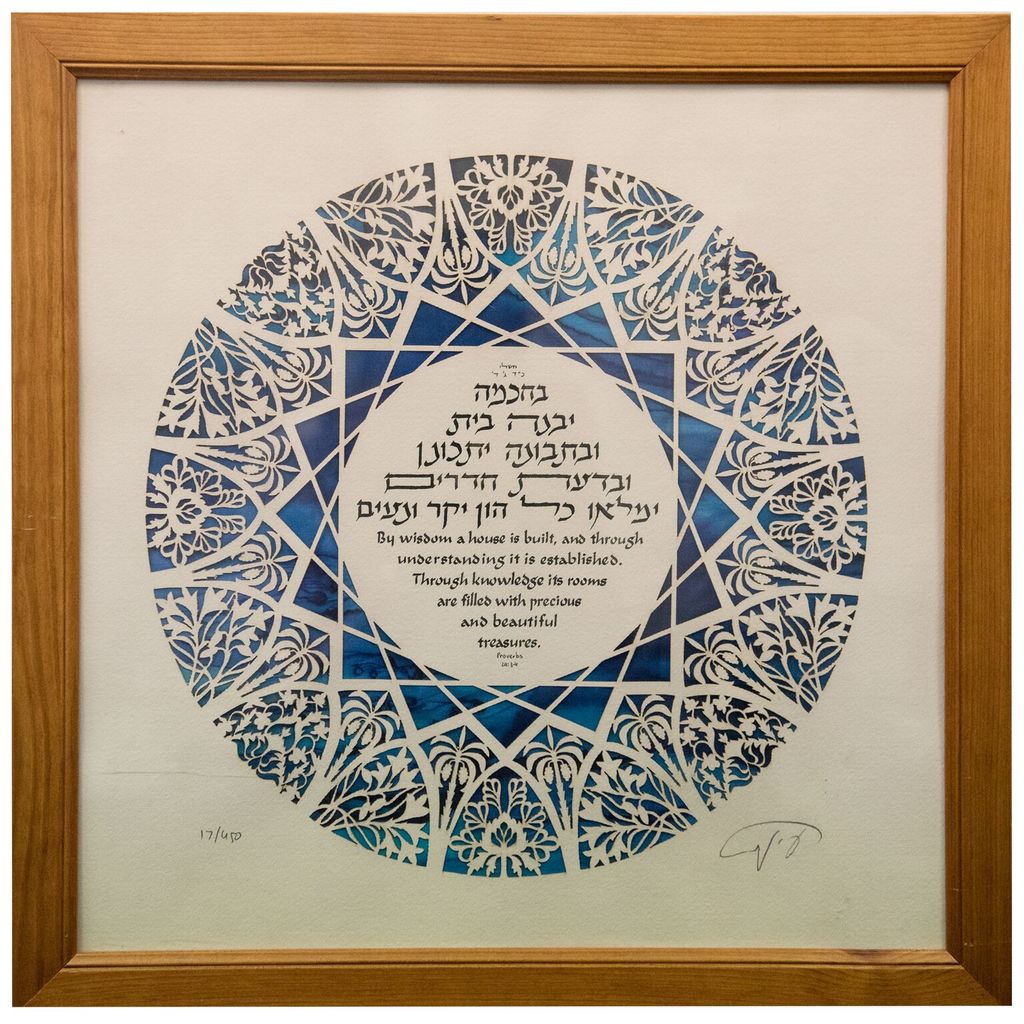 משלי
כ״ד ג׳ ד׳
בחכמה
יבנה בית
ובתבונה יתכונן
ובדעת חדרים
ימלאו כל הון יקר ונעים
By wisdom a house is built, and through
understanding it is established.
Through knowledge its rooms
are filled with precious
and beautiful
treasures.
Proverbs
24:3-4
17/450